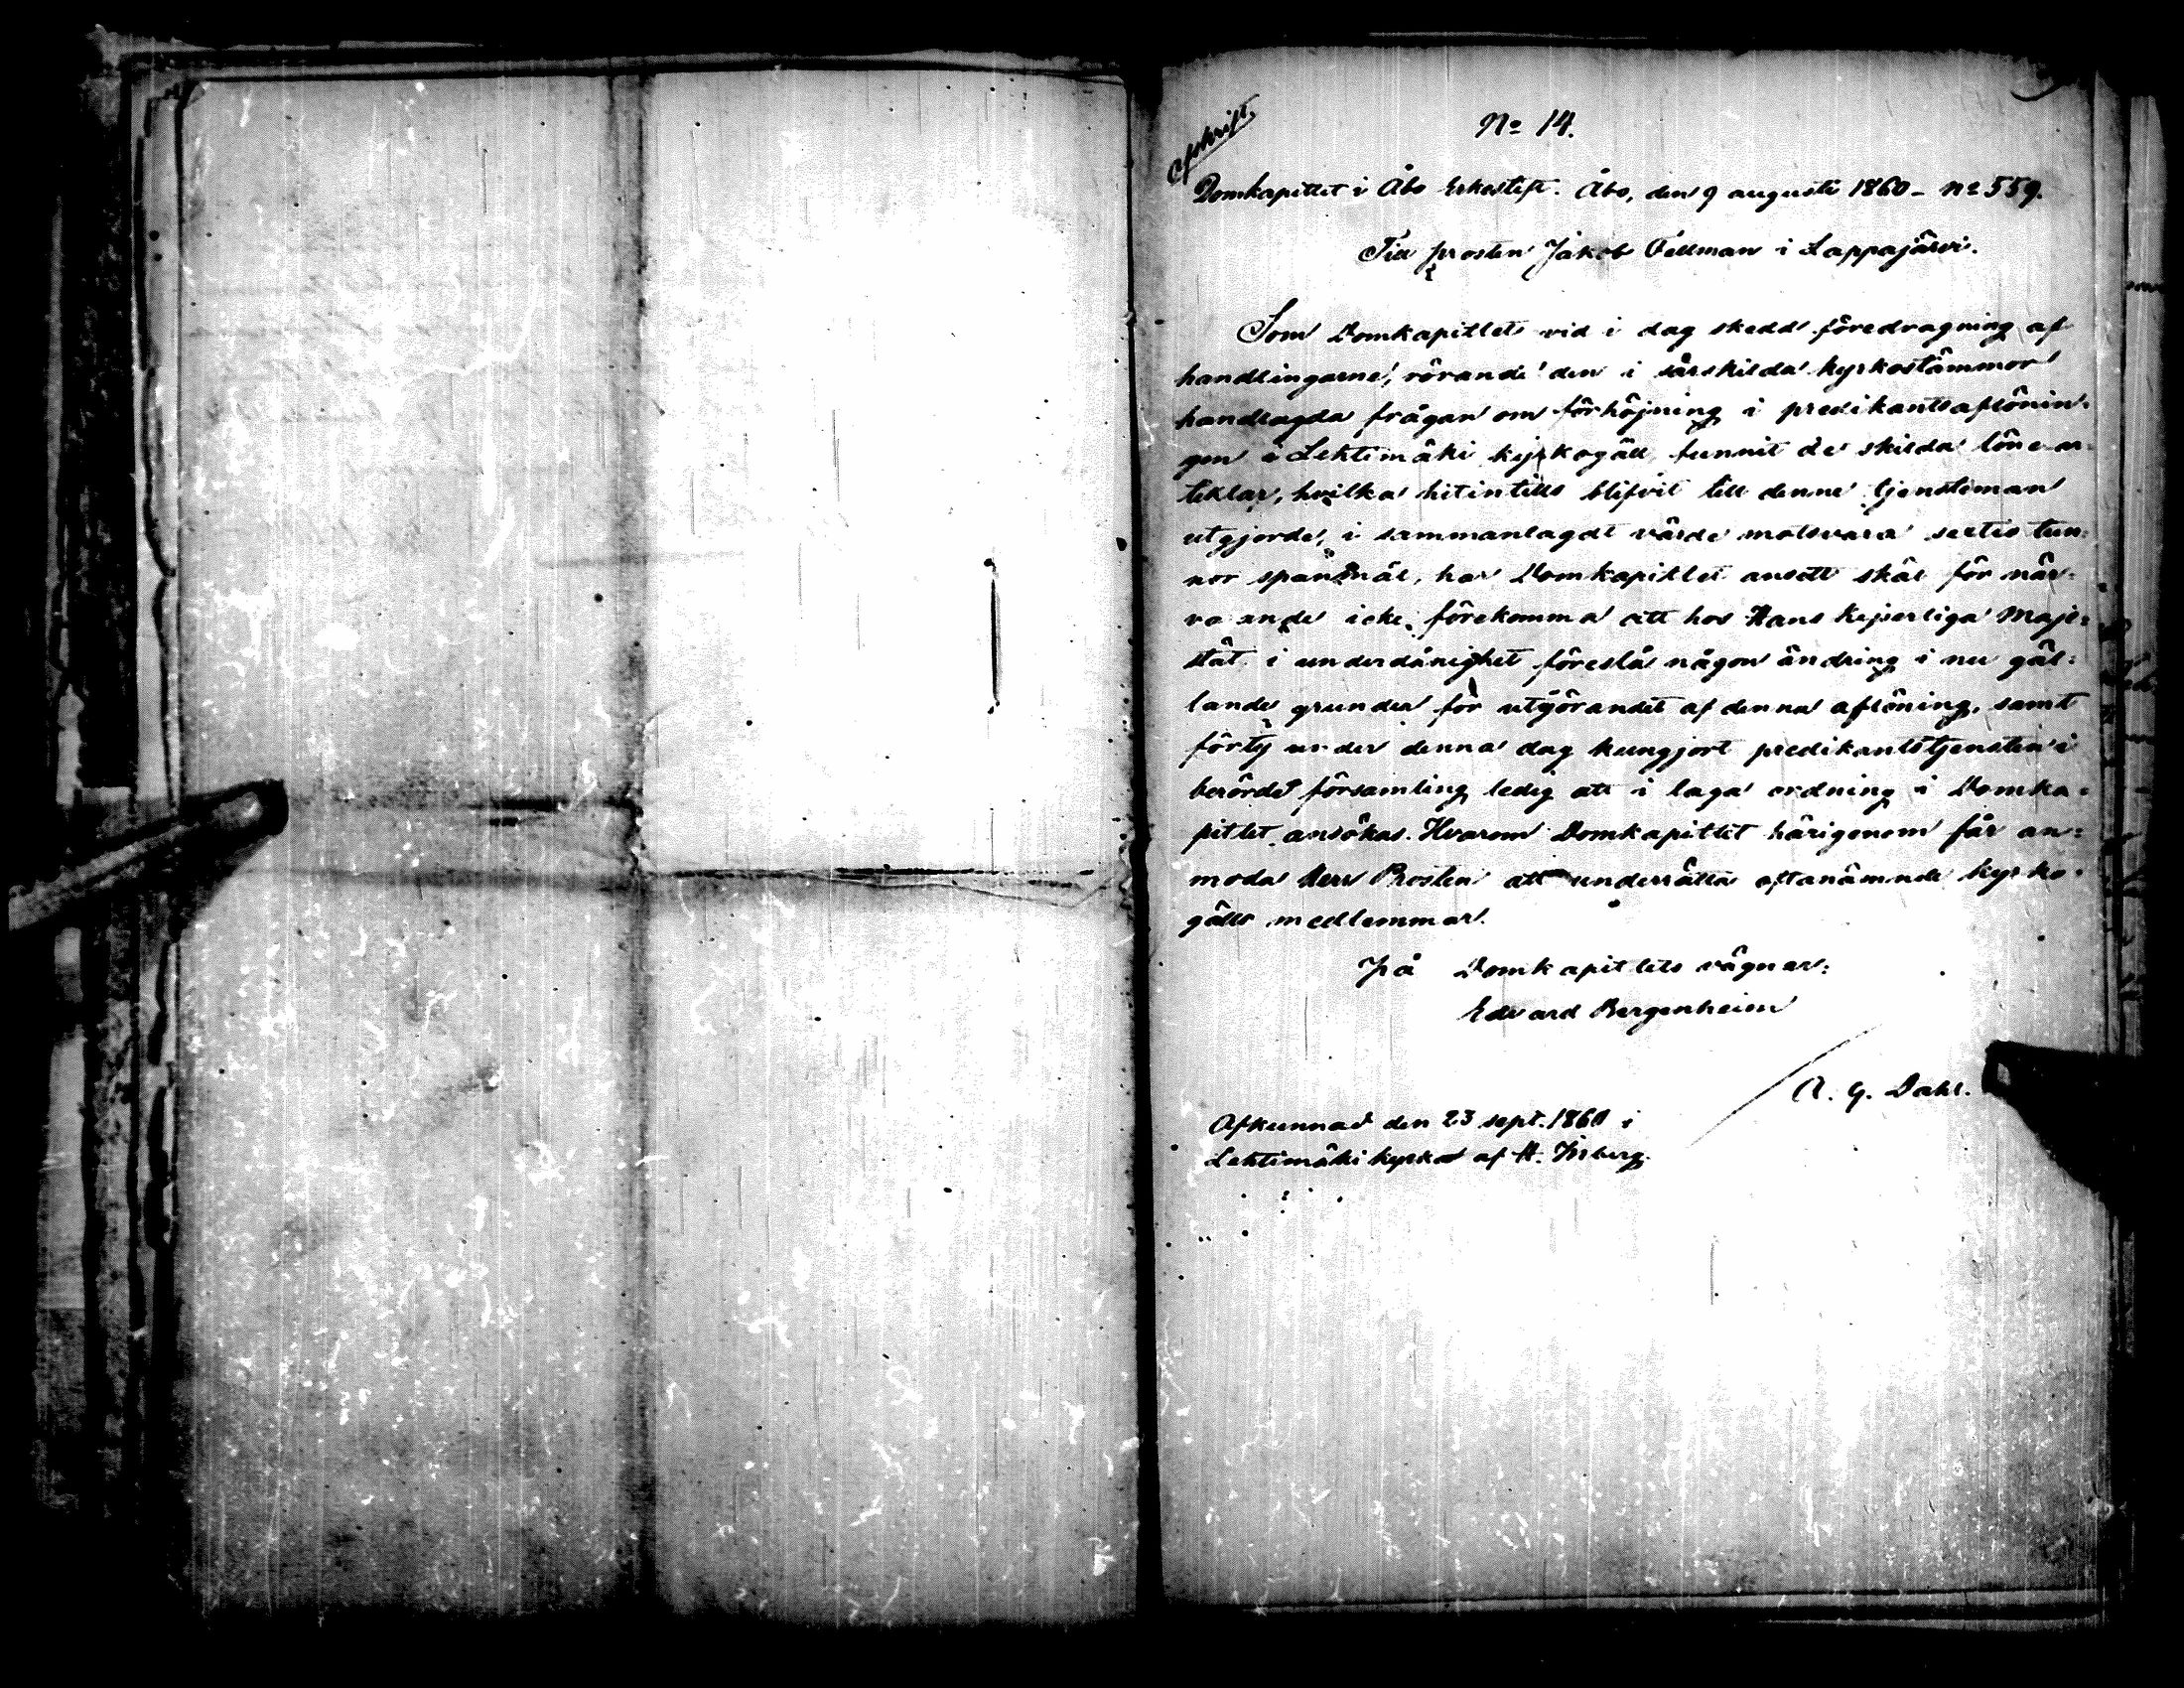 Afskrift.
No 14.
Domkapitlet i Åbo Erkestift. Åbo, den 9 augusti 1860 – No 559.
Till prosten Jakob Fellman i Lappajärvi.
Som Domkapitlet vid i dag skedd föredragning af
handlingarne, rörande den i särskilda kyrkostämmor
handlagda frågan om förhöjning i predikantsaflönin-
gen i Lehtimäki kyrkogäll funnit de skilda löne ar-
tiklar, hvilka hitintills blifvit till denne tjensteman
utgjorde, i sammanlagdt värde motsvara sextio tun-
nor spanmål, har Domkapitlet ansett skäl för när-
va ande icke förekomma att hos Hans Kejserliga Maje-
stät i underdånighet föreslå någon ändring i nu gäl-
lande grunder för utgörandet af denna aflöning, samt
förty under denna dag kungjort predikantstjensten i
berörde församling ledig att i laga ordning i Domka-
pitlet ansökas. Hvarom Domkapitlet härigenom får an-
moda Herr Prosten att underrätta oftanämnde kyrko-
gälls medlemmar.
På Domkapitlets vägnar:
Edvard Bergenheim
A. G. Dahl.
Afkunnad den 23 sept. 1860 i
Lehtimäki kyrka af H.